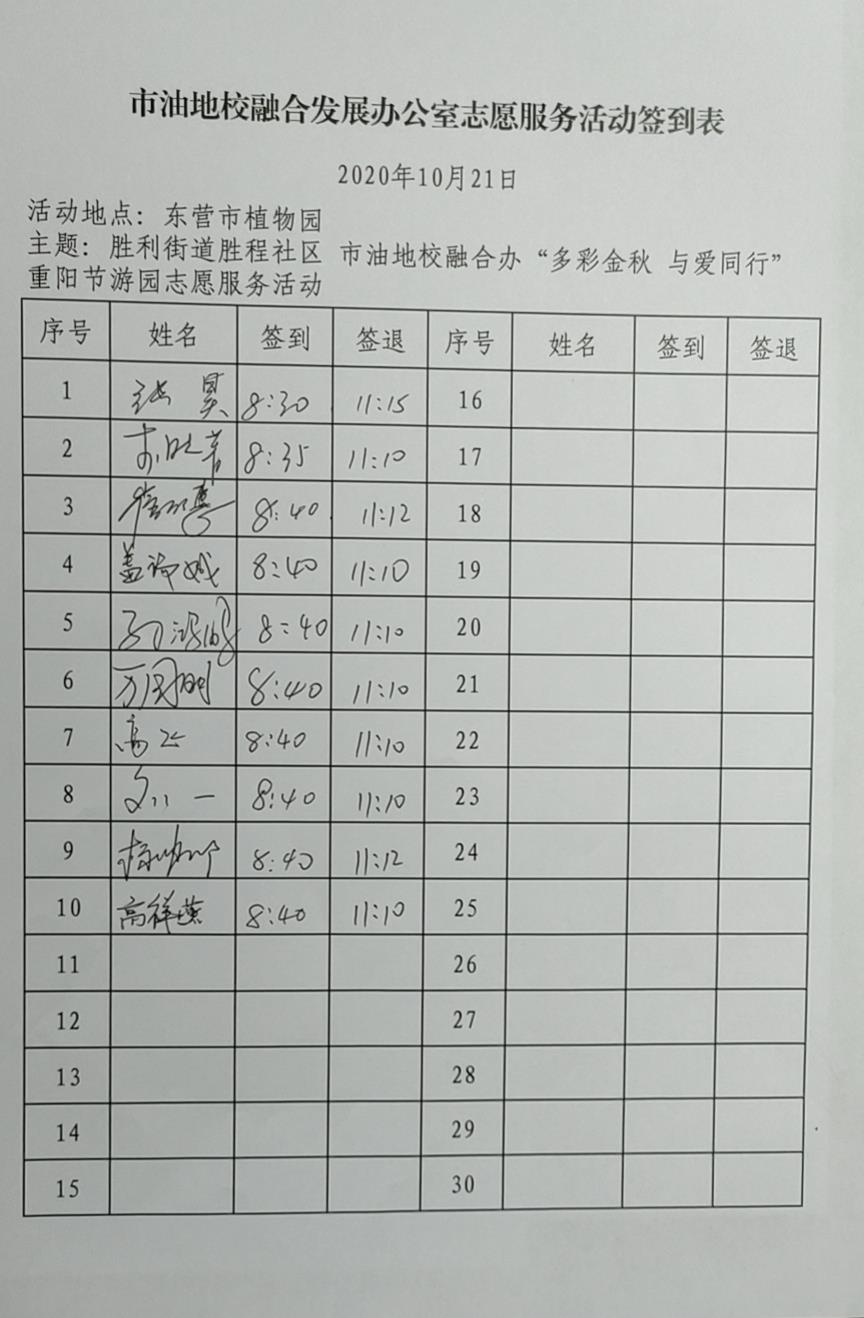 市油地校融合发展办公室志愿服务活动签到表
2020年10月21日
活动地点：东营市植物园
主题：胜利街道胜程社区 市油地校融合办“多彩金秋 与爱同行”
重阳节游园志愿服务活动
序号 姓名 签到 签退 序号 姓名 签到 签退
1 张昊 8:30 11:15 16
2 8:35 11:10 17
3 8:40 11:12 18
4 8:40 11:10 19
5 8:40 11:10 20
6 万国明 8:40 11:10 21
7 高 8:40 11:10 22
8 刘一 8:40 11:10 23
9 8:40 11:12 24
10 高祥燕 8:40 11:10 25
11 26
12 27
13 28
14 29
15 30